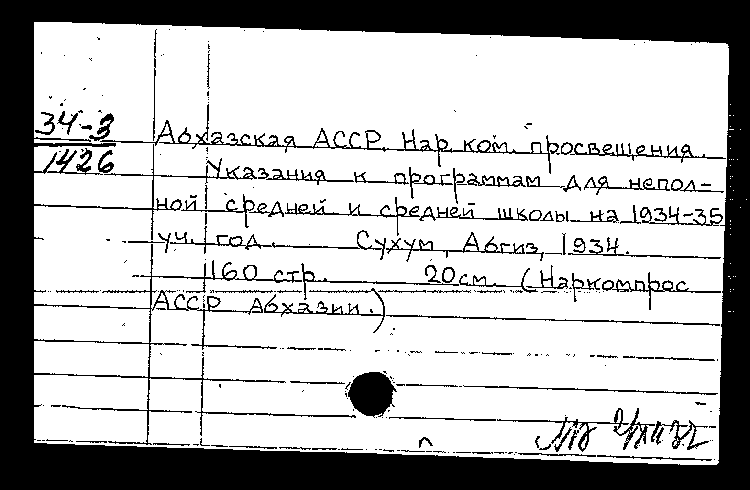 34-3
1426
Абхазская АССР. Нар. ком. просвещения.
Указания к программам для непол-
ной средней и средней школы на 1934-35
уч. год. Сухум, Абгиз, 1934.
160 стр. 20см. (Наркомпрос
АССР Абхазии.)